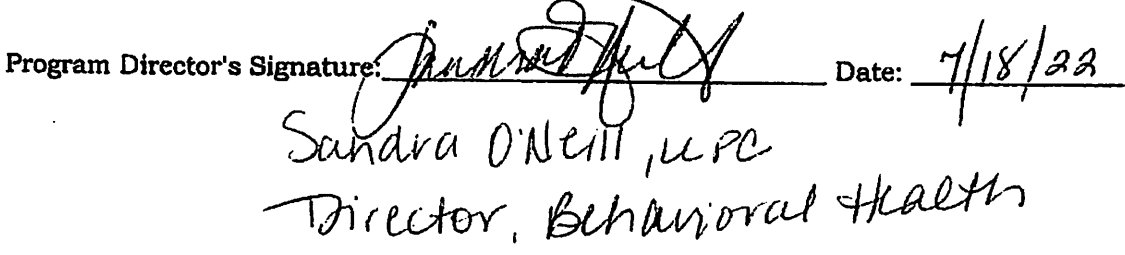 Program Director's Signature: Date: 7/18/22
Sandra O'Neill, LCPC
Director, Behavioral Health